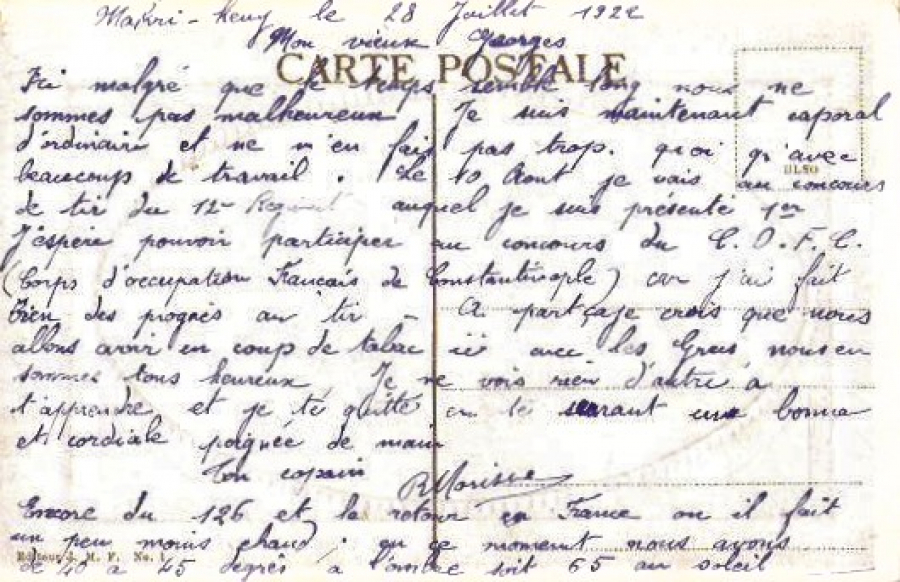 Makri-keuy le 28 Juillet 1922
Mon vieux Georges
CARTE POSTALE
Ici malgré que le temps semble long nous ne
sommes pas malheureux Je suis maintenant caporal
d'ordinaire et ne m'en fais pas trop. quoi qu'avec
beaucoup de travail. Le 10 Aout je vais au concours
de tir du 12e Regiment auquel je suis présenté 1er
J'éspère pouvoir participer au concours du C.O.F.C.
(Corps d'occupation Francais de Constantinople) car j'ai fait
bien des progrès au tir - A part ça je crois que nous
allons avoir un coup de tabac ici avec les Grecs nous en
sommes tous heureux Je ne vois rien d'autre à
t'apprendre et je te quitte en te serrant une bonne
et cordiale poignée de main
Ton copain RMorisse
Encore du 126 et le retour en France ou il fait
un peu moins chaud; en ce moment nous avons
de 40 à 45 degrés à l'ombre soit 65 au soleil
Editeur J. M. F. No. 1